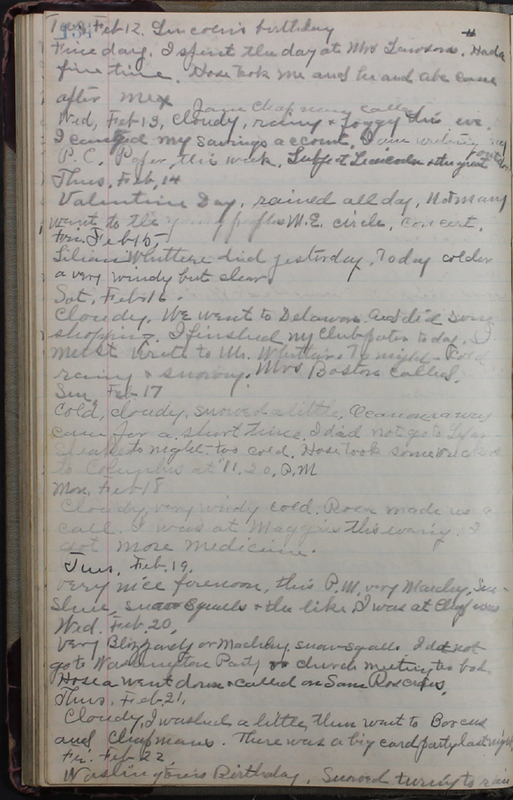 Tues, Feb 12. Lincoln's birthday
Fine day. I spent the day at Mrs Lawsons. Had a
fine time. Hose took me and he and Abe came
after me.
Jane Chapman called
Wed, Feb 13, cloudy, rainy & foggy this eve.
I my savings account. I am writing my
P.C. Paper this week. Subject Lincoln & the great
Thus. Feb. 14
Valentine Day, rained all day, Not many
went to the young peoples M.E. circle, concert.
Fri. Feb 15,
Lilian Whittier died yesterday, Today colder
a very windy but clear.
Sat, Feb 16.
Cloudy, We went to Delaware and did some
shopping. I finished my Club paper today.
Must write to Mr. Whittier to night. Cold
rainy & snowy. Mrs Boston called.
Sun, Feb 17
Cold, cloudy, snowed a little,
came for a short time. I did not go to
to night - too cold. Hose took some
to Columbus at 11.20, P.M
Mon, Feb 18
Cloudy, very windy cold. Rosa made us a
call. I was at Maggies this evening. I
got more medicine.
Tues, Feb. 19.
Very nice forenoon, this P.M. very Marchy, Sun-
shine, snow squalls & the like I was at
Wed. Feb. 20,
Very Blizzardy or Marchy, snow squalls. I did not
go to Washington Party or church meeting too bad.
Hose a went down & called on Sam Rosecrans.
Thus. Feb. 21.
Cloudy, I washed a little, then went to
and Chapmans. There was a big card party last night,
Fri. Feb 22
Washingtons Birthday. Snowed turning to rain